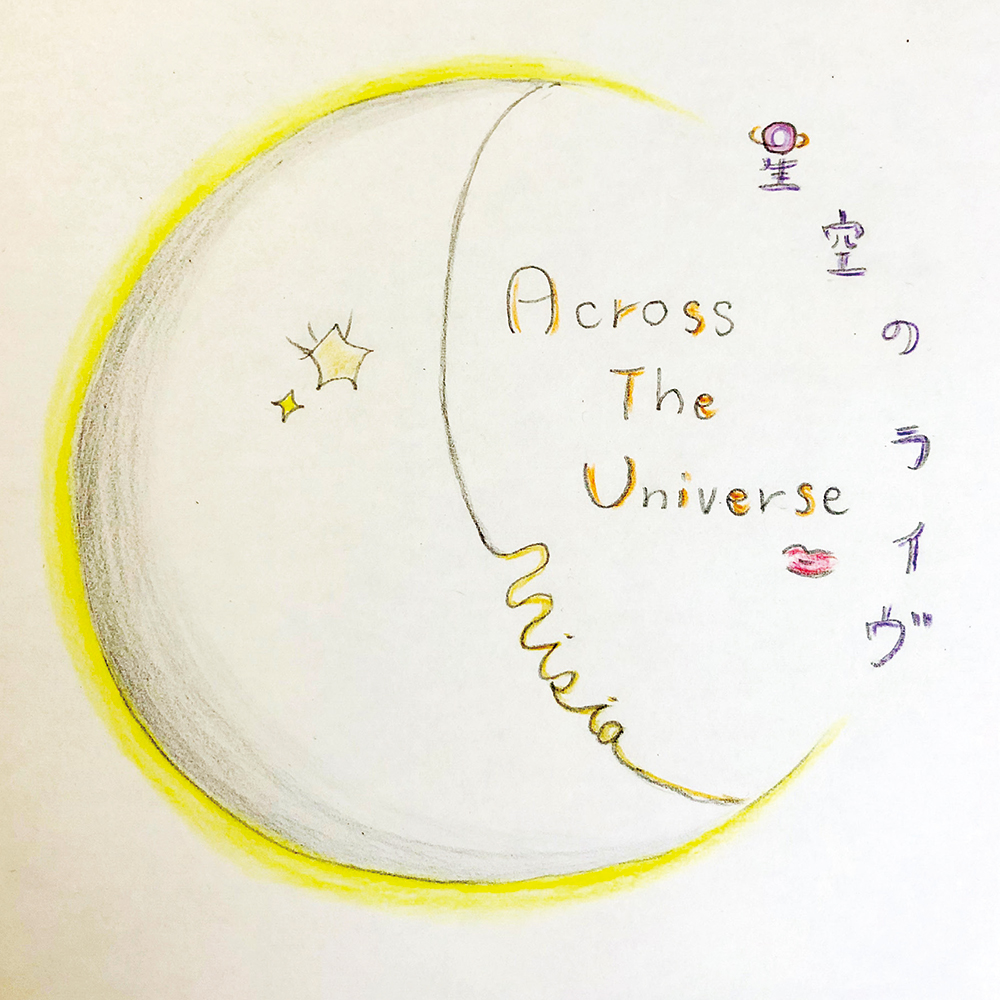 星空のライヴ
Across
The
Universe
Misia